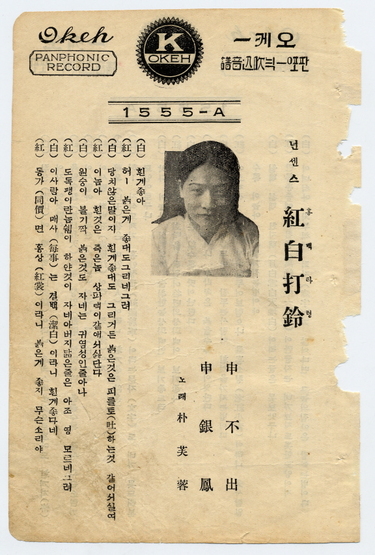 Okeh
PANPHONIC
RECORD
K
OKEH
오케ー
1555-A
넌센스
紅白打鈴
홍백타령
申不出
申銀鳳
노래 朴芙蓉
(白) 힌게좋아
(紅) 허ー 붉은게 좋대도그리네그려
(白) 당치않은말말지 힌게좋대도 그리거든 붉은것은 피를토(吐)하는것 같어서실여
(紅) 이놈아 힌것은 죽은놈 상파댁이같애서싫단다
(白) 원숭이 볼기짝 붉은것도 자네는 귀영성인줄아나
(紅) 도독괭이란놈쉠이 하얀것이 자네아버지닮은줄은 아조 영 모르네그려
(白) 이사람아 매사(每事)는 결백(潔白)이라니 힌게좋다네
(紅) 동가(同價)면 홍상(紅裳)이라니 붉은게 좋지 무슨소리야